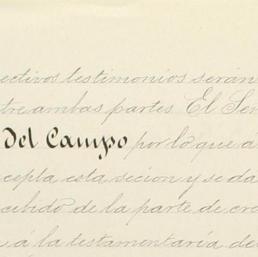 ectivos testimonios serán
tre ambas partes El Sen
Del Campo por lo que á
cepta esta secion y se da
cibido de la parte de cre
á la testamentaría de